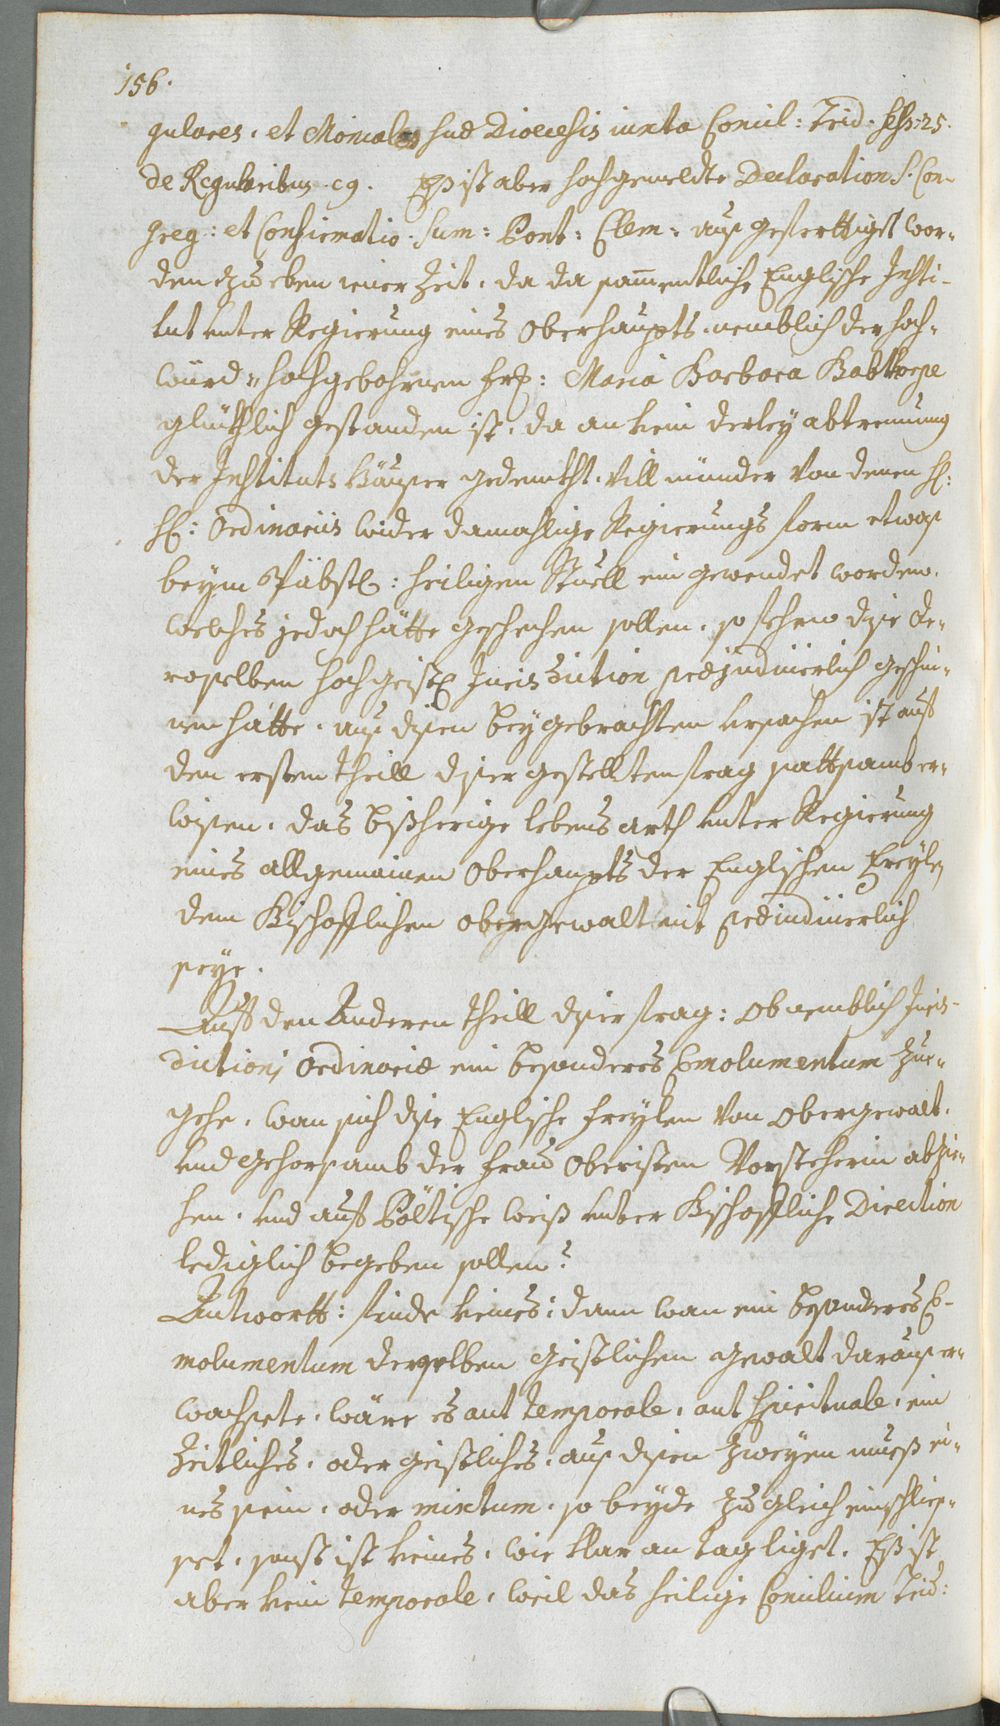 156.
gulares, et Moniales suæ Dioecesis iuxta Concil: Trid: Sess: 25.
de Regularibus c 9. Eß ist aber hochgemeldte Declaration S. Con-
greg: et Confirmatio Sum: Pont: Clem: auß gefferttiget wor-
den zu eben iener Zeit, da da sam̅entliche Englische Insti-
tut unter Regierung eines Oberhaupts, nemblich der hoch-
würd- hochgebohrnen Frl: Maria Barbara Babthorpe
glückhlich gestanden ist, da an kein derley abtrennung
der Instituts Häuser gedenckht, vill münder von denen H:
H: Ordinariis wider damahlige Regierungs form etwaß
beym Päbstl: heiligen Stuell ein gewendet worden,
welches jedoch hätte geschehen sollen, so fehrn dise de-
roselben hoch geistl: Jurisdiction præjudicierlich geschie-
nen hätte. auß disen beygebrachten ursachen ist auff
den ersten theill diser gestellten frag sattsamb er-
wisen, das bißherige lebens arth unter Regierung
eines allgemainen Oberhaupts der Englischen Freylen
dem Bischofflichen obergewalt nit præiudicierlich
seye.
Auff den Anderen theill diser frag: Ob nemblich Juris-
dictioni Ordinariæ ein besonderes Emolumentum zue-
gehe, wan sich dise Englische freylen von obergewalt,
und gehorsamb der Frau Oberisten Vorsteherin abzie-
hen, und auff Pöltische weiß unter Bischoffliche Direction
lediglich begeben sollen?
Antwortt: finde keines; dann wan ein besonderes E-
molumentum derselben geistlichen gewalt darauß er-
wachsete, wäre es aut temporale, aut spirituale, ein
zeitliches, oder geistliches, auß disen zweyen mueß ei-
nes sein, oder mixtum, so beyde zugleich einschlies-
set, sonst ist keines, wie klar an tag liget. Eß ist
aber kein temporale, weil das heilige Concilium Trid: